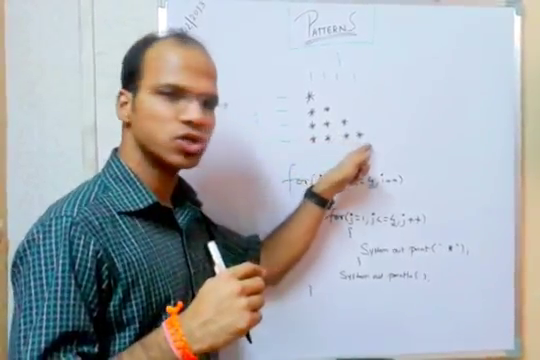 PATTERNS
*
* *
* * *
* * * *
for(
for(j=1, j<=4, j++)
{
System out print(" *");
}
System out println( );
}